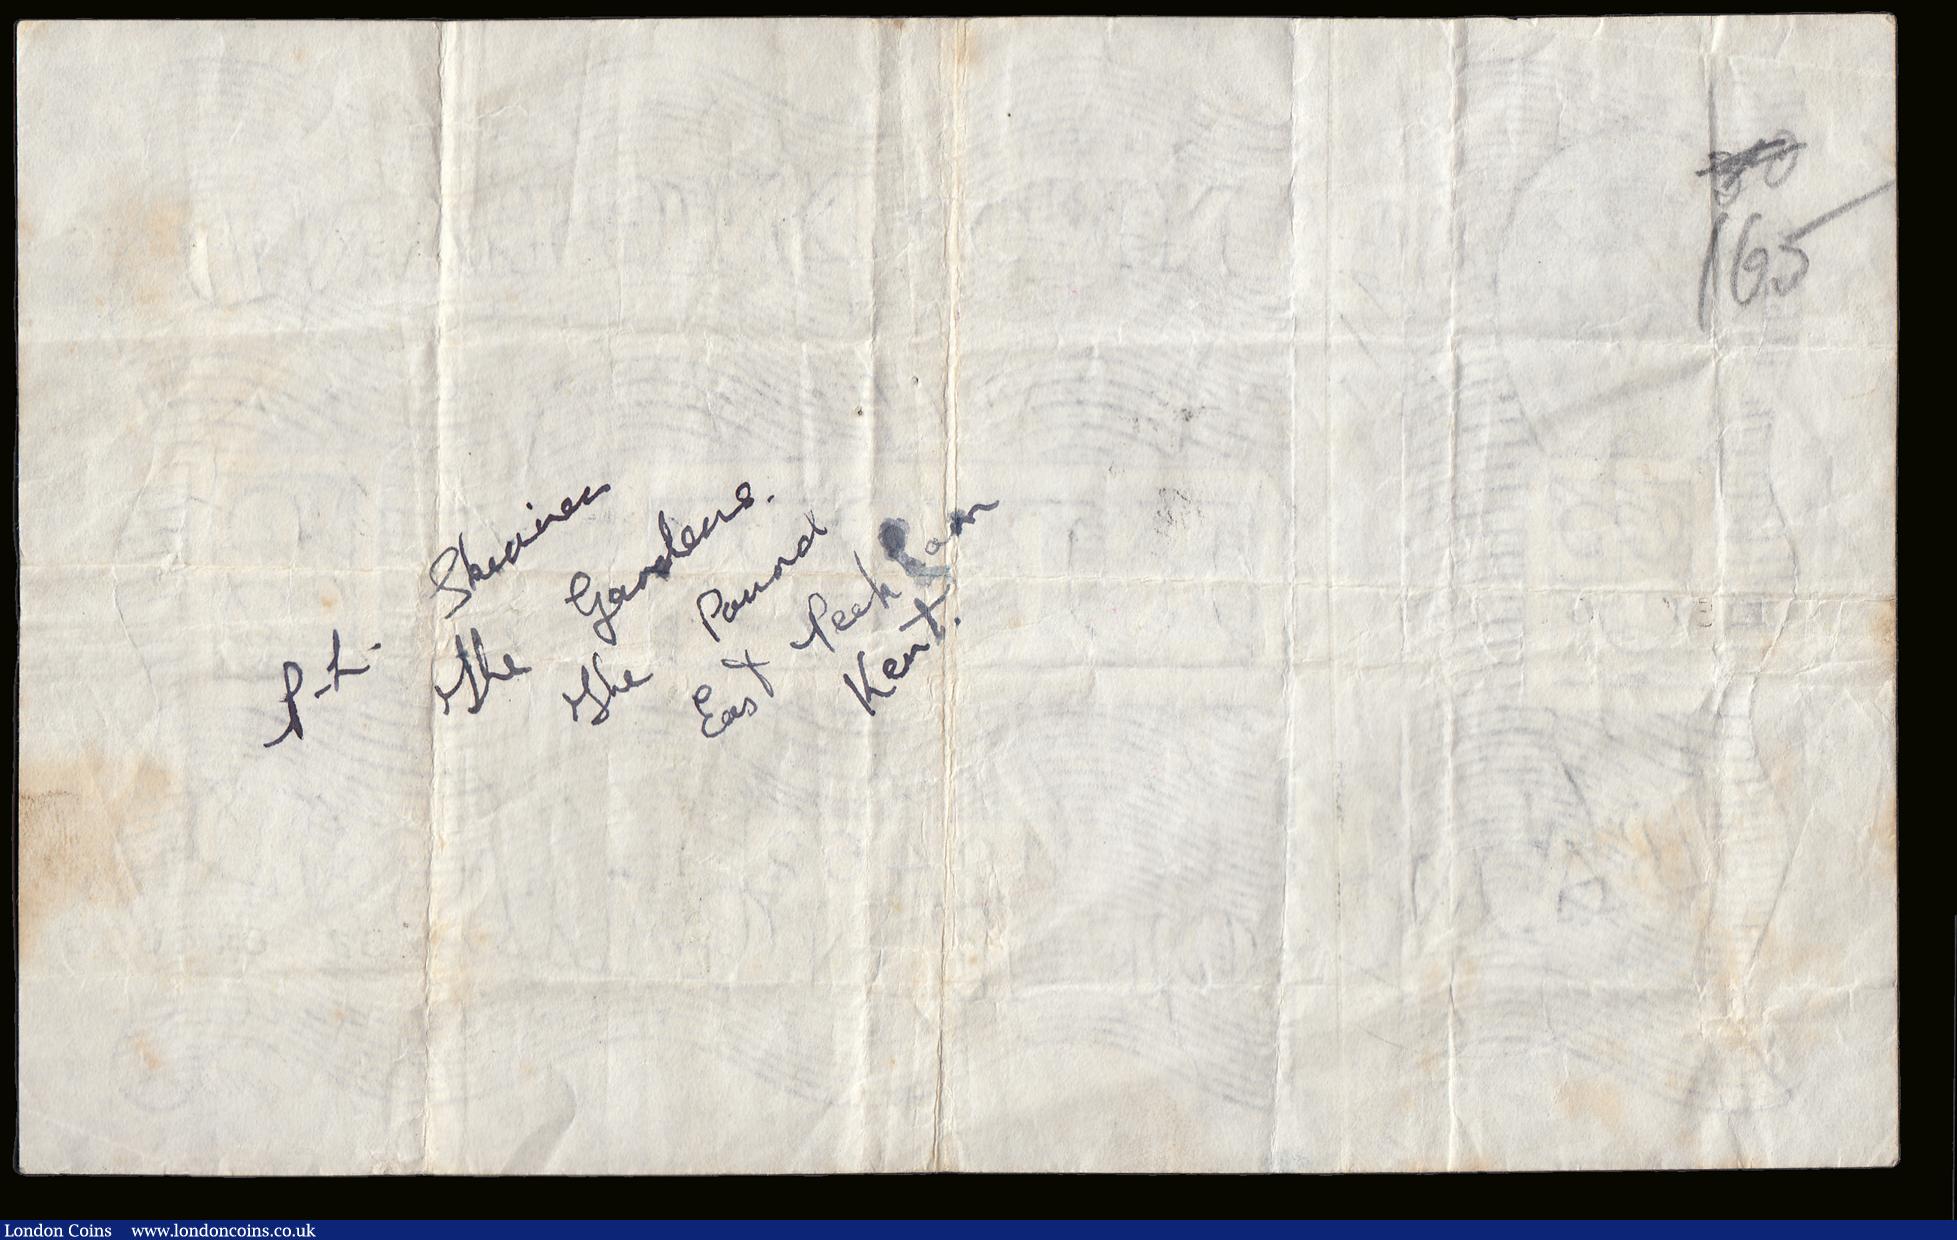 165
P-L. Skeviner
The Gardens.
The Pound
East Peckham
Kent.
London Coins www.londoncoins.co.uk